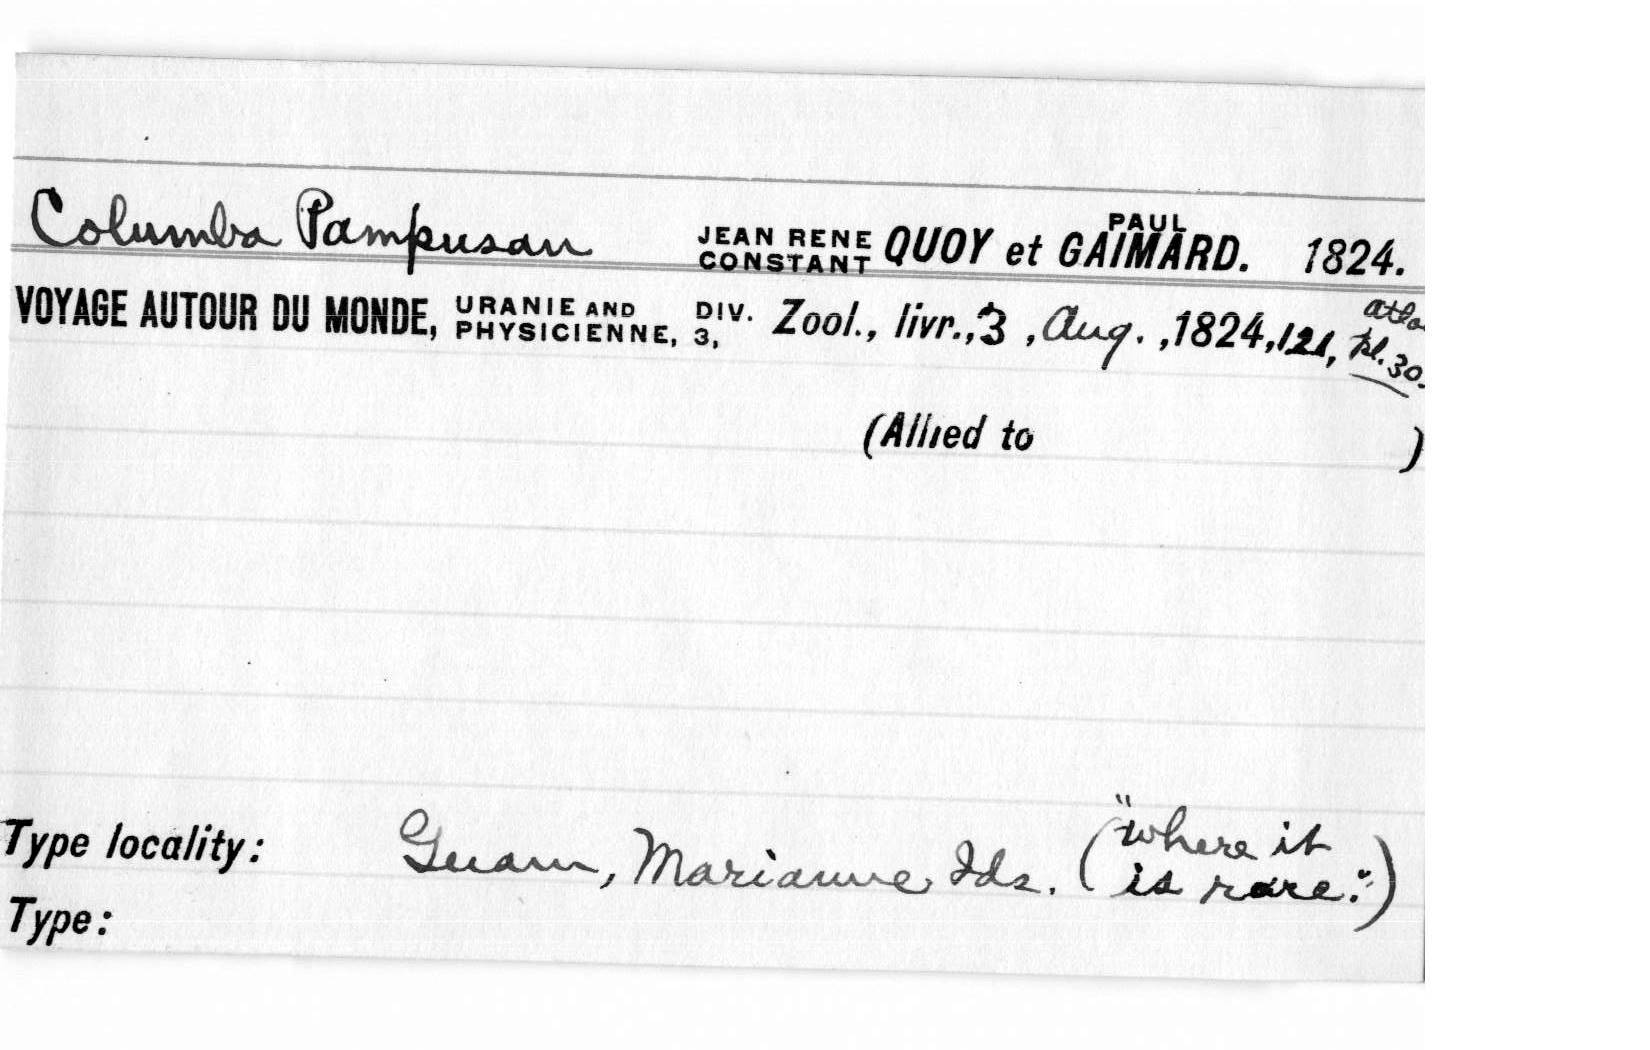 Columba Pampusan JEAN RENE CONSTANT QUOY et PAUL GAIMARD. 1824.
VOYAGE AUTOUR DU MONDE, URANIE AND PHYSICIENNE, DIV. 3, Zool., livr., 3, Aug., 1824, 121, atla pl. 30.
(Allied to )
Type locality: Guam, Marianne Ids. ("where it is rare.")
Type: